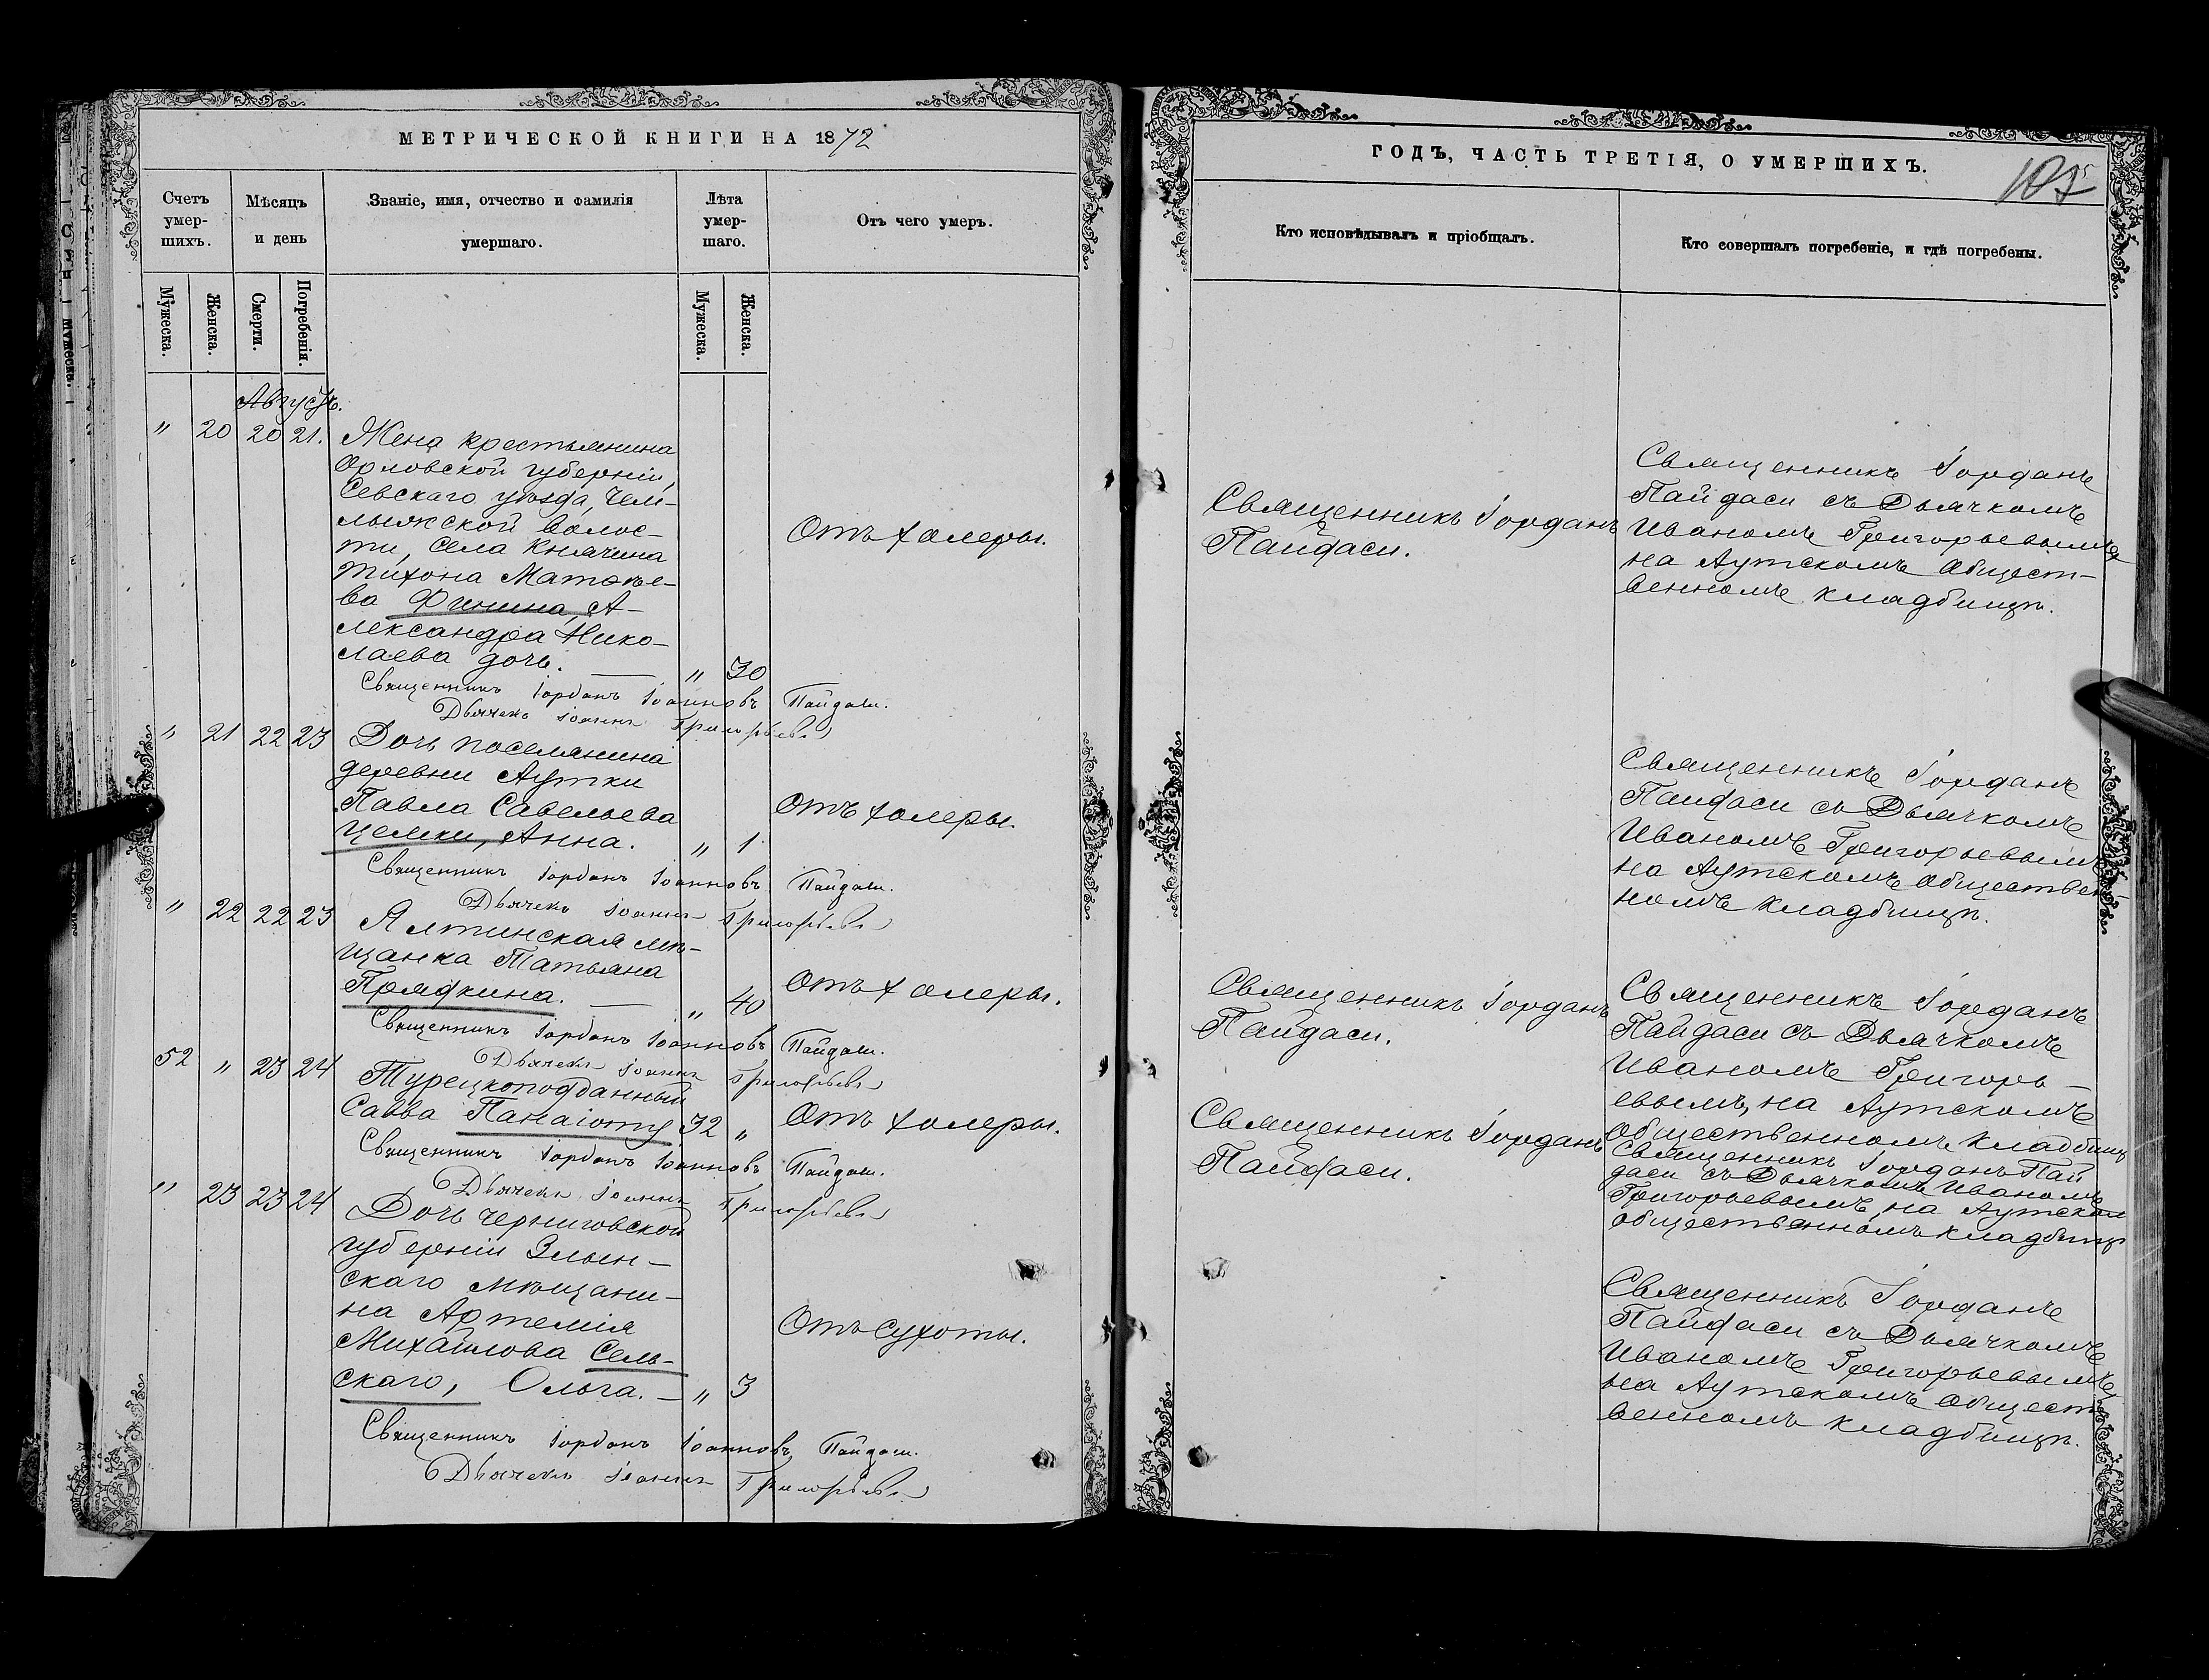 МЕТРИЧЕСКОЙ КНИГИ НА 1872
Счетъ умер-шихъ.
Мѣсяцъ и день
Званіе, имя, отчество и фамилія умершаго.
Лѣта умер-шаго.
Отъ чего умеръ.
Мужеска.
Женска.
Смерти.
Погребенія.
Мужеска.
Женска.
Августъ.
" 20 20 21. Жена крестьянина
Орловской губерніи,
Севскаго уѣзда, Чем-
лыжской волос-
ти, села Княгина
Тихона Матвѣе-
ва Финина, А-
лександра Нико-
лаева дочь. — " 30
Отъ холеры.
Священникъ Іорданъ Іоанновъ Пайдаси.
Дьячекъ Іоаннъ Григорьевъ
" 21 22 23 Дочь поселянина
деревни Аутки
Павла Савельева
Цемки, Анна. " 1
Отъ холеры.
Священникъ Іорданъ Іоанновъ Пайдаси.
Дьячекъ Іоаннъ Григорьевъ
" 22 22 23 Ялтинская мѣ-
щанка Татьяна
Прядкина. — " 40
Отъ холеры.
Священникъ Іорданъ Іоанновъ Пайдаси.
Дьячекъ Іоаннъ Григорьевъ
52 " 23 24 Турецкоподданный
Савва Панаіоту 32 "
Отъ холеры.
Священникъ Іорданъ Іоанновъ Пайдаси.
Дьячекъ Іоаннъ Григорьевъ
" 23 23 24 Дочь Черниговской
губерніи Злын-
скаго мѣщани-
на Артемія
Михайлова Сель-
скаго, Ольга. — " 3
Отъ сухоты.
Священникъ Іорданъ Іоанновъ Пайдаси.
Дьячекъ Іоаннъ Григорьевъ
ГОДЪ, ЧАСТЬ ТРЕТІЯ, О УМЕРШИХЪ.
Кто исповѣдывалъ и пріобщалъ.
Кто совершалъ погребеніе, и гдѣ погребены.
Священникъ Іорданъ
Пайдаси.
Священникъ Іорданъ
Пайдаси съ Дьячкомъ
Иваномъ Григорьевымъ
на Аутскомъ общест-
венномъ кладбищѣ.
Священникъ Іорданъ
Пайдаси съ Дьячкомъ
Иваномъ Григорьевымъ
на Аутскомъ обществен-
номъ кладбищѣ.
Священникъ Іорданъ
Пайдаси.
Священникъ Іорданъ
Пайдаси съ Дьячкомъ
Иваномъ Григорь-
евымъ, на Аутскомъ
общественномъ кладбищѣ
Священникъ Іорданъ
Пайдаси.
Священникъ Іорданъ Пай
даси съ Дьячкомъ Иваномъ
Григорьевымъ, на Аутском
общественномъ кладбищѣ
Священникъ Іорданъ
Пайдаси съ Дьячкомъ
Иваномъ Григорьевымъ,
на Аутскомъ общест
венномъ кладбищѣ.